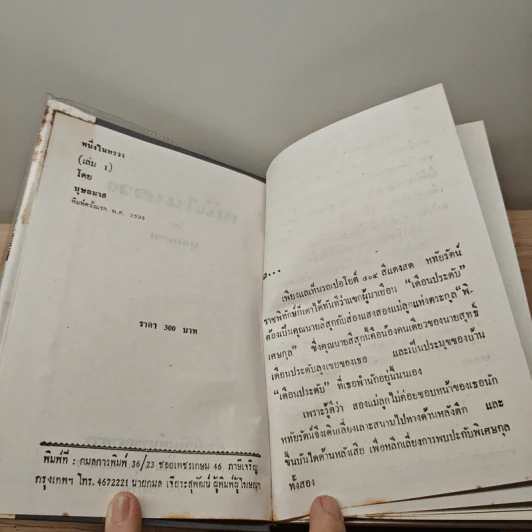 หนึ่งในทรวง
(เล่ม 1)
โดย
บุษยมาส
พิมพ์ครั้งแรก พ.ศ.
ราคา 300 บาท
พิมพ์ที่ : กมลการพิมพ์ 36/23 ซอยเพชรเกษม 46 ภาษีเจริญ
กรุงเทพฯ โทร. 4672221 นายกมล เจียระสุพัฒน์ ผู้พิมพ์ผู้โฆษณา
๑...
เพียงแลเห็นรถเปอโยต์ ๕๐๔ สีแดงสด หทัยรัตน์
ราชพิทักษ์ก็เดาได้ทันทีว่าแขกผู้มาเยือน "เดือนประดับ"
ต้องเป็นคุณนายลีสุกกับสองแสงสองแม่ลูกแห่งตระกูล "พิ-
เศษกุล" ซึ่งคุณนายลีสุกก็คือน้องคนเดียวของนายสุทธิ์
เดือนประดับลุงเขยของเธอ และเป็นประมุขของบ้าน
"เดือนประดับ" ที่เธอพำนักอยู่นี่นเอง
เพราะรู้ดีว่า สองแม่ลูกไม่ค่อยชอบหน้าของเธอนัก
หทัยรัตน์จึงเดินเลี่ยงและสนามไปทางด้านหลังตึก และ
ขึ้นบันไดด้านหลังเสีย เพื่อหลีกเลี่ยงการพบปะกับพิเศษกุล
ทั้งสอง